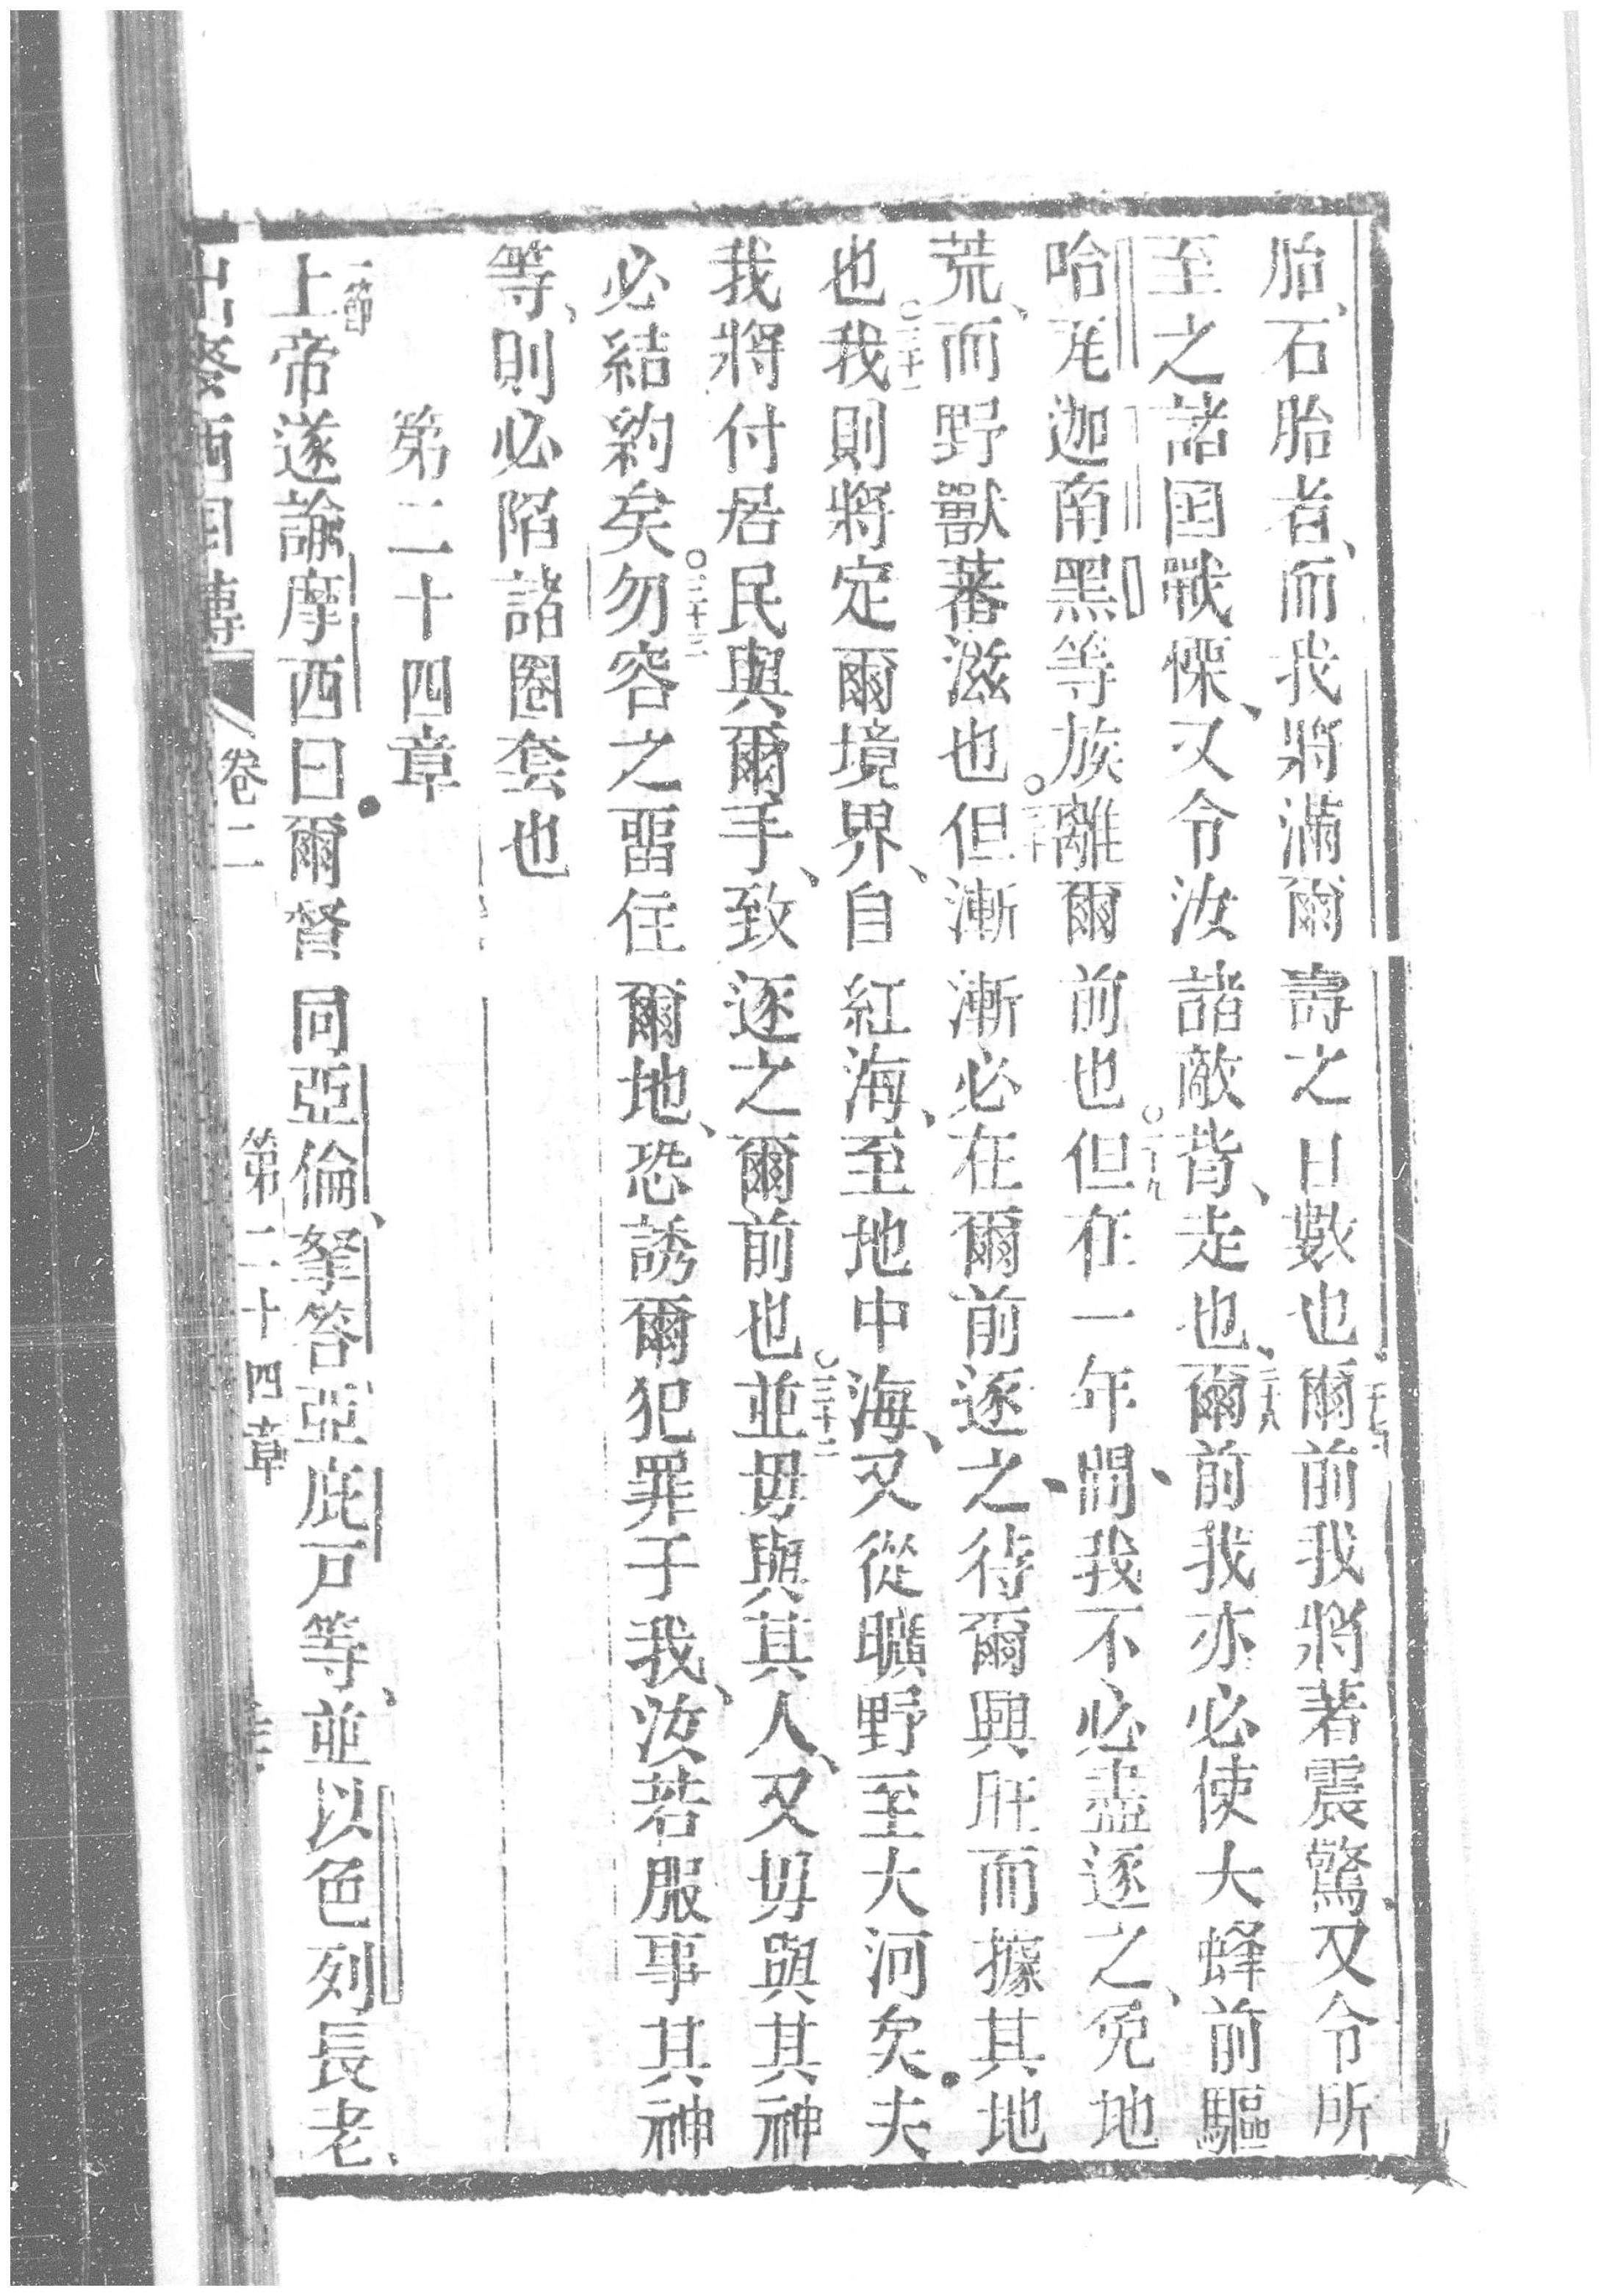 胎、石胎者、而我將滿爾壽之日數也二十七爾前我將著震驚又令所
至之諸国戰慄、又令汝諸敵背、走也、二十八爾前我亦必使大蜂前驅
哈咓迦南黑等族離爾前也○二十九但在一年間、我不必盡逐之、免地
荒、而野獸蕃滋也○三十但漸漸必在爾前逐之、待爾興旺而據其地
也○三十一我則將定爾境界、自紅海、至地中海、又從曠野至大河矣．夫
我將付居民與爾手、致逐之爾前也○三十二並毋與其人、又毋與其神
必結約矣○三十三勿容之畱住爾地、恐誘爾犯罪于我、汝若服事其神
等、則必陷諸圈套也
第二十四章
一節上帝遂諭摩西曰．爾督同亞倫、拏答亞庇戸等、並以色列長老、
卷二 第二十四章